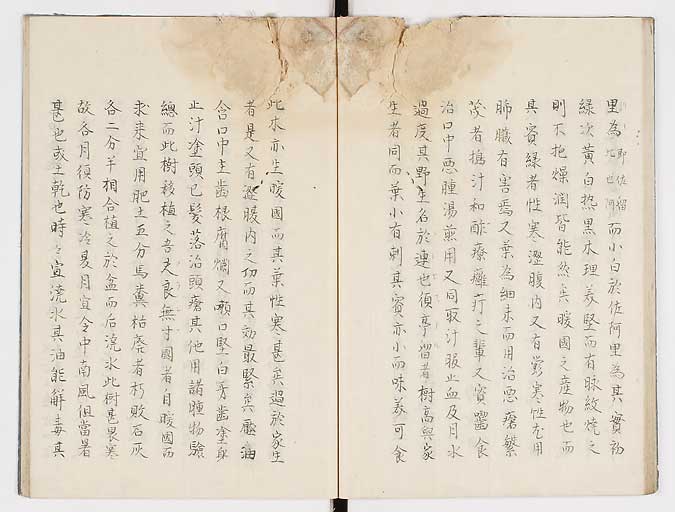 里為 即佐留比也阿 而小白於佐阿里為其實初
綠次黃白熱黒木理美堅而有脉紋燒之
則不抱燥潤皆能然矣暖國之産物也而
其實綠者性寒澀腹內又有嘗寒性尤用
肺臟有害焉又葉為細末而用治惡瘡繁
茂者搗汁和酢療癰疔之輩又實嚼食
治口中惡腫湯煎用又同取汁服止血及月水
過度其野生名於連也須亭留者樹高與家
生者同而葉小有刺其實亦小而味美可食
此木亦生暖國而其葉性寒甚矣過於家生
者是又有澀腹內之切而其効最緊矣壓油
含口中主齒根腐爛又嚼口堅白芳齒塗
止汁塗頭已髮落治頭瘡其他用諸腫物驗
總而此樹移植之吾夫良無寸國者自暖國而
求来宜用肥土五分馬糞枯磨者朽敗石灰
各二分半相合植之於盆而后澆水此樹甚畏寒
故吞月須防寒冷夏月宜令中南風但當暑
甚也或土乾也時々宜澆水其油能解毒其